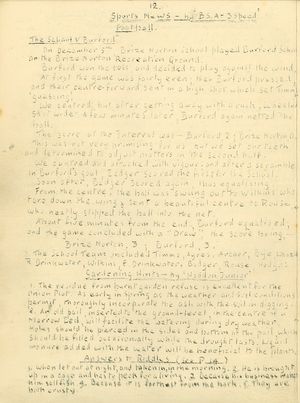 12.
Sports News - by "B.S.A - 3 Speed"
Football.
The School v Burford
On December 5th Brize Norton School played Burford School
on the Brize Norton Recreation Ground.
Burford won the toss and decided to play against the wind.
At first the game was fairly even, then Burford pressed
and their centre-forward sent in a high shot which set Timms
guessing.
We centred, but after getting away with a rush, wheeled
Still under a few minutes later, Burford again netted the
ball.
The score at the Interval was - Burford 2; Brize Norton 0.
This was not very promising for us but we set our teeth
and determined to adjust matters in the second half.
We centred and attacked with vigour and after a scramble
in Burford's goal, Ledger scored the first for the School.
Soon after, Ledger scored again, thus equalising.
From the centre, the ball was swung out to Wilkins who
tore down the wing & sent a beautiful centre to Rouse
who neatly slipped the ball into the net.
About five minutes from the end, Burford equalised,
and the game concluded with a "Draw", the score being -
Brize Norton, 3. Burford, 3.
The School Team included Timms, Ayres, Archer,
Drinkwater, Wilkins, F. Drinkwater, Ledger, Rouse, Hodges
Gardening Hints - by
1. The residue from burnt garden refuse is excellent for the
Onion Plot. As early in Spring as the weather and soil conditions
permit, thoroughly incorporate the ash with the soil in digging.
2. An old pail, inserted to the ground-level, in the centre of a
Marrow Bed will facilitate watering during dry weather.
Holes should be pierced in the sides and bottom of the pail which
should be filled occasionally while the drought lasts. Liquid
manure added with the water will be beneficial to the plants.
Answers to Riddles (see P. 14)
1. When let out at night, and taken in in the morning. 2. He is brought
up in a cage and hosts people for a living. 3. Because his business makes
him sell fish. 4. Because it is farthest from the bark. 5. They are
both crusty.